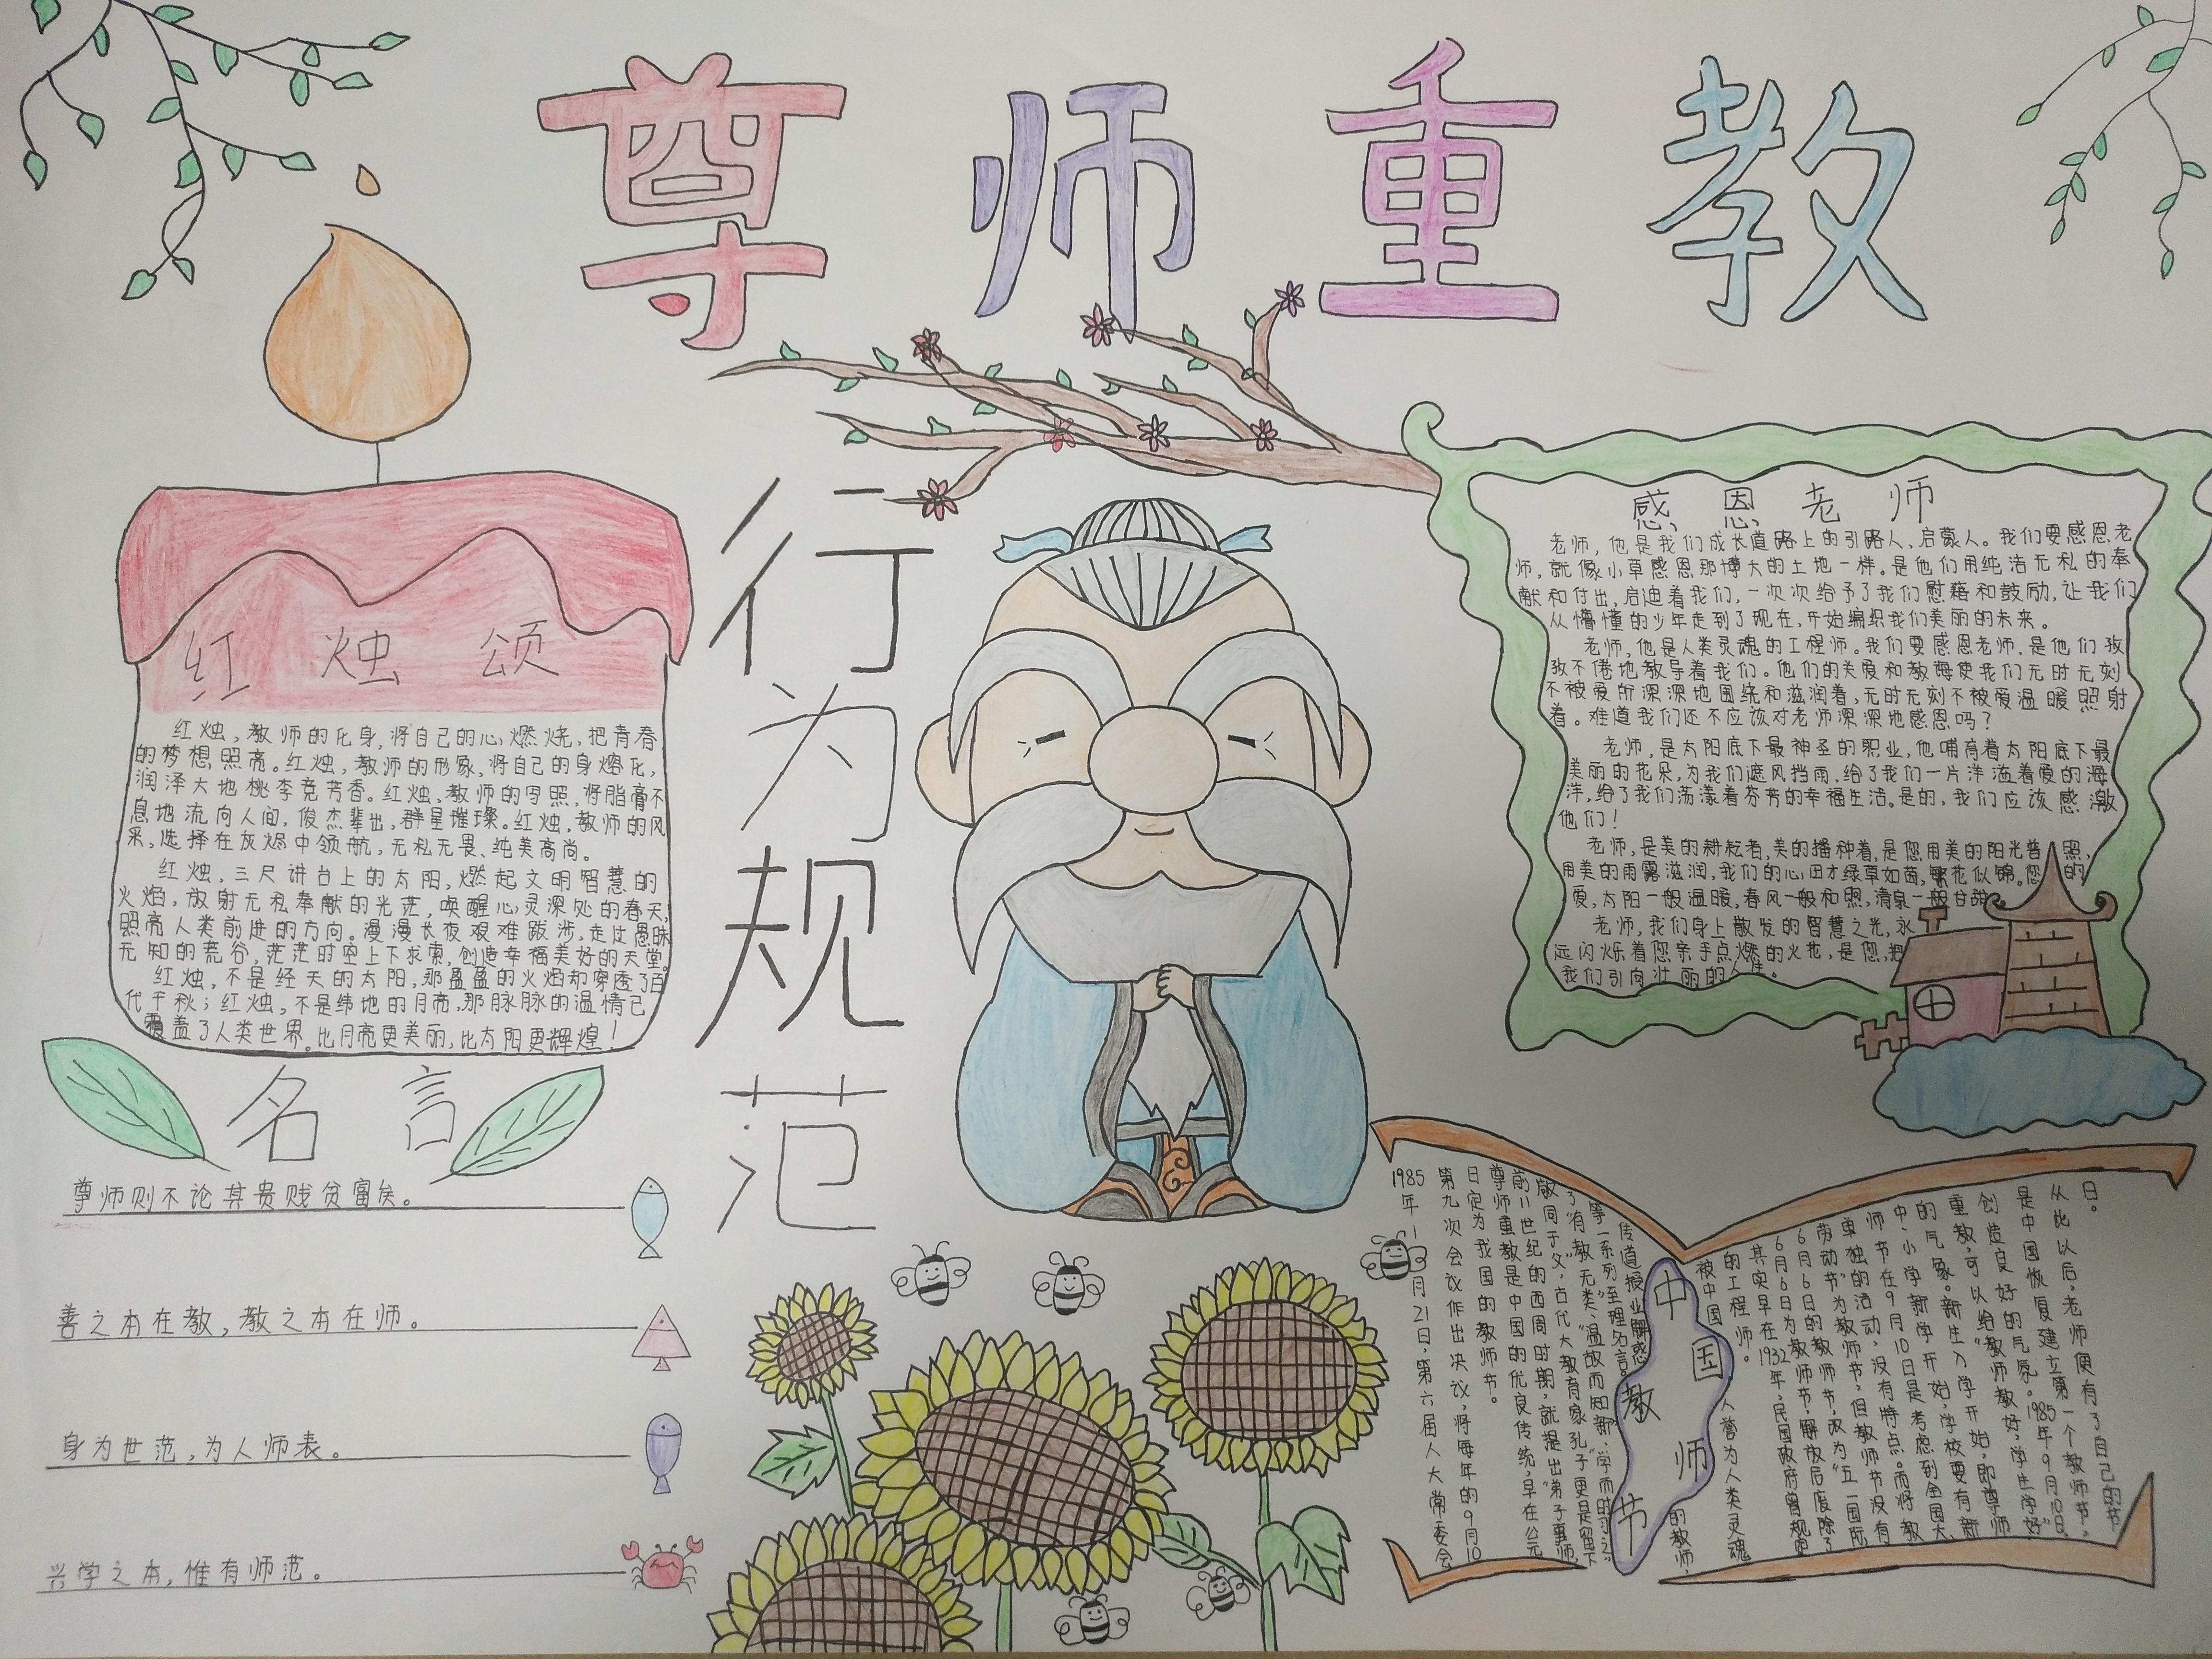 尊师重教
行为规范
红烛颂
红烛，教师的化身，将自己的心燃烧，把青春
的梦想照亮。红烛，教师的形象，将自己的身熔化，
润泽大地桃李竞芳香。红烛，教师的写照，将脂膏不
息地流向人间，俊杰辈出，群星璀璨。红烛，教师的风
采，选择在灰烬中领航，无私无畏、纯美高尚。
红烛，三尺讲台上的太阳，燃起文明智慧的
火焰，放射无私奉献的光茫，唤醒心灵深处的春天，
照亮人类前进的方向。漫漫长夜艰难跋涉，走过愚昧
无知的荒谷，茫茫时空上下求索，创造幸福美好的天堂。
红烛，不是经天的太阳，那盈盈的火焰却穿透了百
代千秋；红烛，不是纬地的月亮，那脉脉的温情已
覆盖了人类世界。比月亮更美丽，比太阳更辉煌！
名言
尊师则不论其贵贱贫富矣。
善之本在教，教之本在师。
身为世范，为人师表。
兴学之本，惟有师范。
感恩老师
老师，他是我们成长道路上的引路人、启蒙人。我们要感恩老
师，就像小草感恩那博大的土地一样。是他们用纯洁无私的奉
献和付出，启迪着我们，一次次给予了我们慰藉和鼓励，让我们
从懵懂的少年走到了现在，开始编织我们美丽的未来。
老师，他是人类灵魂的工程师。我们要感恩老师，是他们孜
孜不倦地教导着我们。他们的关爱和教悔使我们无时无刻
不被爱所深深地围绕和滋润着，无时无刻不被爱温暖照射
着。难道我们还不应该对老师深深地感恩吗？
老师，是太阳底下最神圣的职业，他哺育着太阳底下最
美丽的花朵，为我们遮风挡雨，给了我们一片洋溢着爱的海
洋，给了我们荡漾着芬芳的幸福生活。是的，我们应该感激
他们！
老师，是美的耕耘者，美的播种着，是您用美的阳光普照，
用美的雨露滋润，我们的心田才绿草如茵，繁花似锦。您的
爱，太阳一般温暖，春风一般和煦，清泉一般甘甜。
老师，我们身上散发的智慧之光，永
远闪烁着您亲手点燃的火花，是您，把
我们引向壮丽的人生。
中国教师节
1985年1月21日，第六届人大常委会
第九次会议作出决议，将每年的9月10
日定为我国的教师节。
尊师重教是中国的优良传统，早在公元
前11世纪的西周时期，就提出“弟子事师，
敬同于父”，古代大教育家孔子更是留下
了“有教无类”“温故而知新、学而时习之”
等一系列至理名言。
传道授业解惑
的教师，
被中国人誉为人类灵魂
的工程师。
其实早在1932年，民国政府曾规定
6月6日为教师节，解放后废除了
6月6日的教师节，改为“五一国际
劳动节”为教师节，但教师节没有
单独的活动，没有特点。而将教
师节在9月10日是考虑到全国大、
中、小学新学开始，学校要有新
的气象。新生入学开始，即尊师
重教，可以给“教师教好，学生学好”
创造良好的气氛。1985年9月10日，
是中国恢复建立第一个教师节，
从此以后，老师便有了自己的节
日。